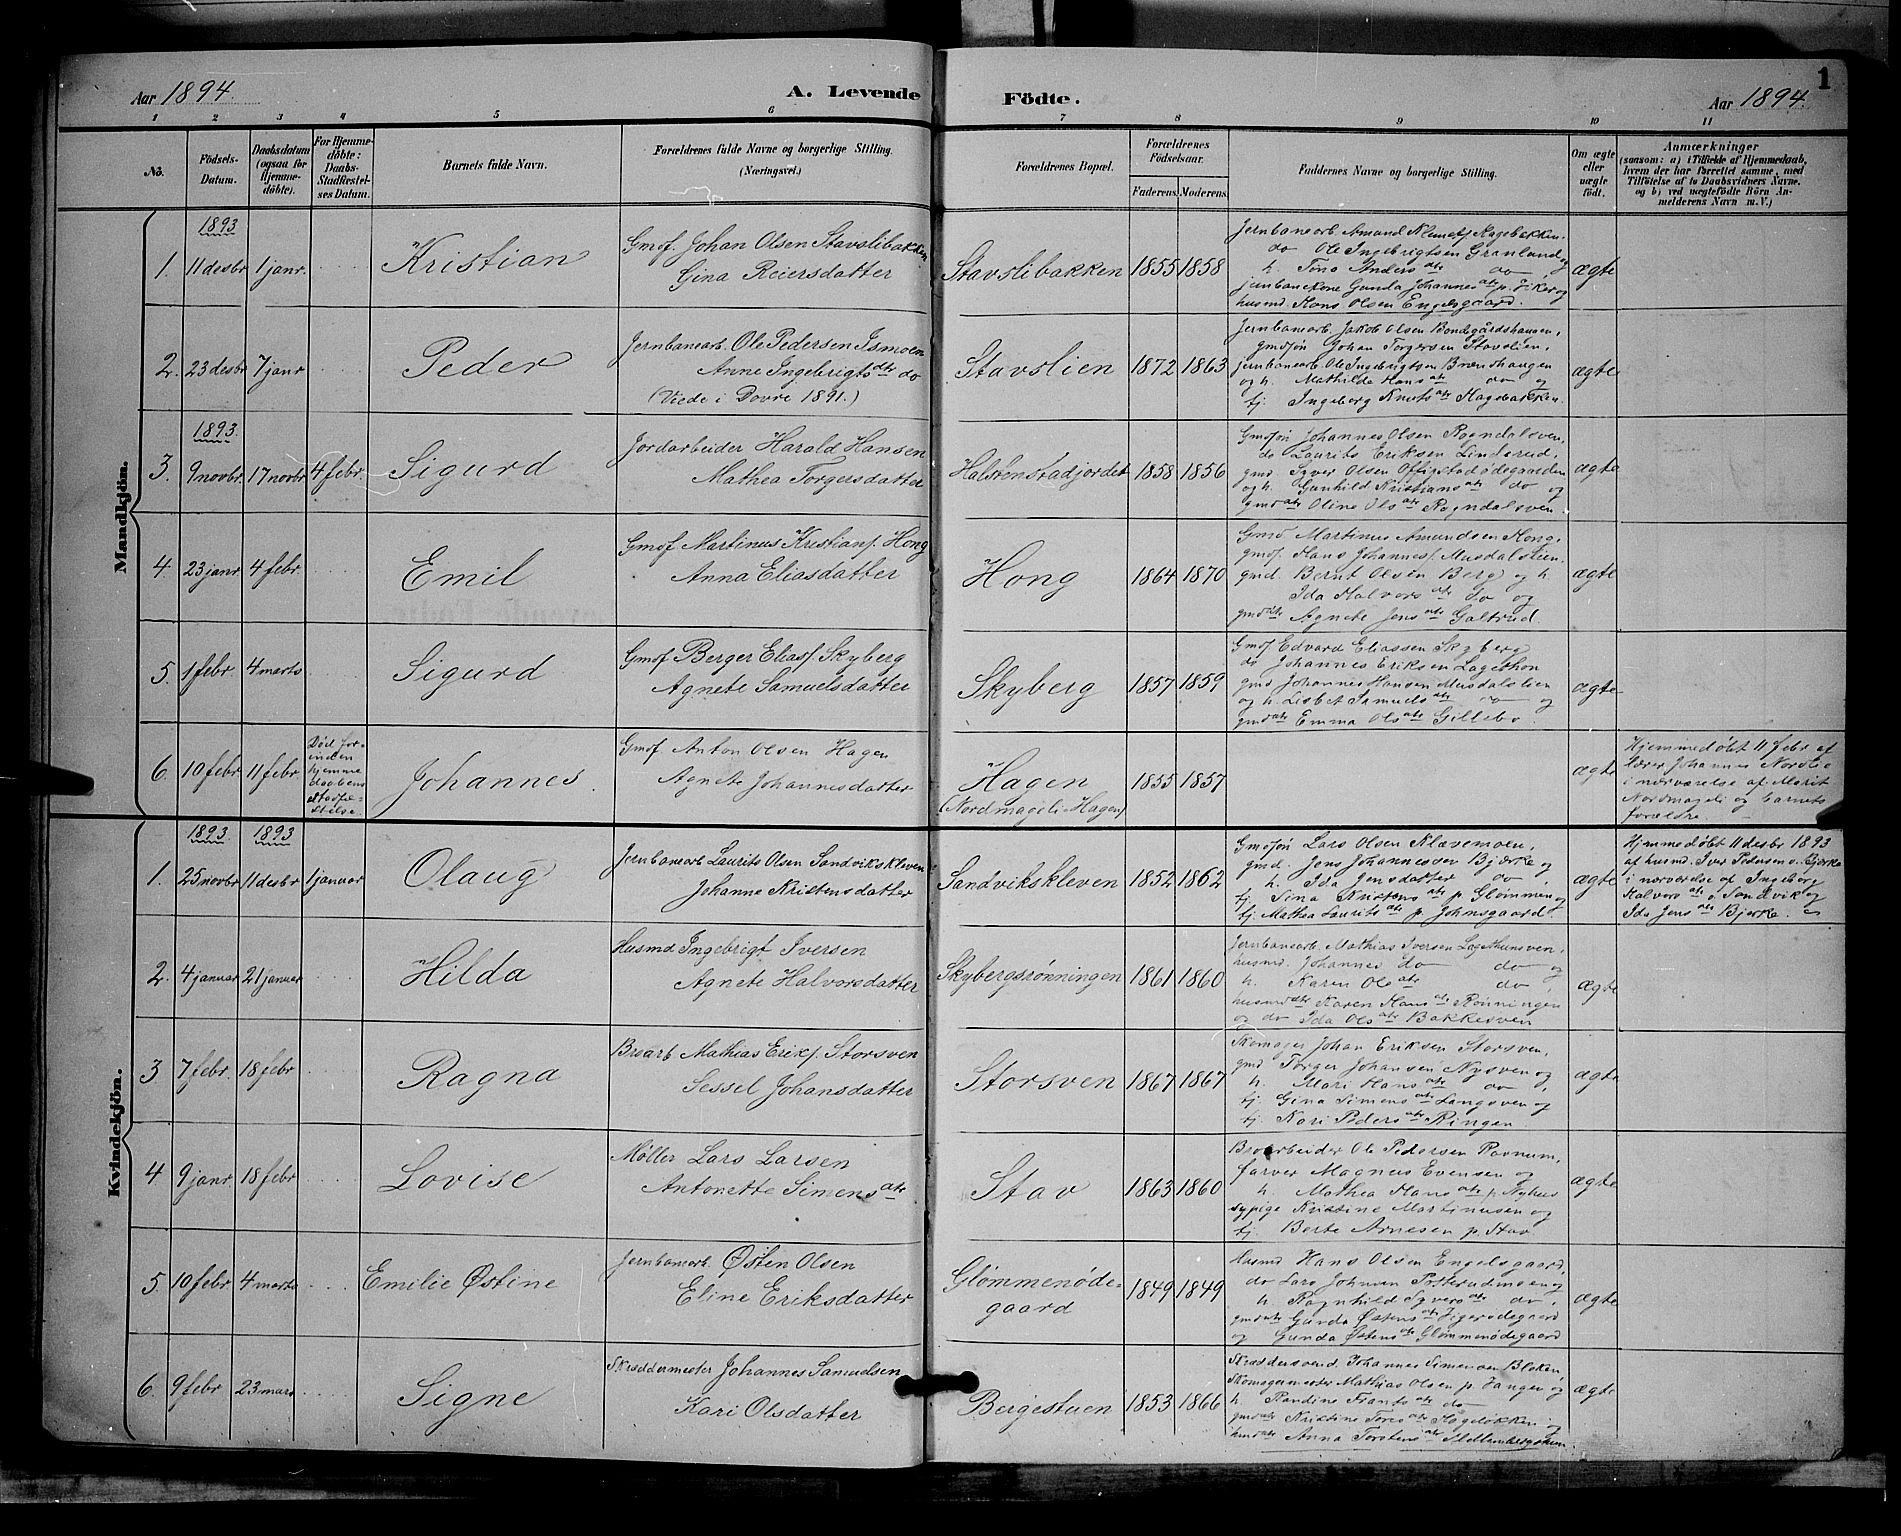 Aar 1894. A. Levende Födte. Aar 1894. 1
1 2 3 4 5 6 7 8 9 10 11
No. Födsels-Datum. Daabsdatum (ogsaa for Hjemme-döbte). For Hjemme-döbte: Daabs-Stadfæstel-ses Datum. Barnets fulde Navn. Forældrenes fulde Navne og borgerlige Stilling. (Næringsvei.) Forældrenes Bopæl. Forældrenes Födselsaar. Faderens. Moderens. Faddernes Navne og borgerlige Stilling. Om ægte eller uægte födt. Anmærkninger (saasom: a) i Tilfælde af Hjemmedaab, hvem der har forrettet samme, med Tilföielse af to Daabsvidners Navne, og b) ved uægtefödte Börn An-melderens Navn m. V.)
Mandkjön.
1893
1. 11 desbr 1 janr. Kristian
Gmof. Johan Olsen Stavslibakken
Gina Reiersdatter
Stavslibakken 1855 1858
Jernbanearb. Amund Klemets. Hagebakken,
do Ole Ingebrigtsen Grønland og
h. Tona Andersdtr do
jernbanekone Gunda Johannesdtr p. og
husmd. Hans Olsen Engelsgaard.
ægte
2. 23 desbr 7 janr Peder
Jernbanearb. Ole Pedersen Ismoen
Anne Ingebrigtsdtr do
(Viede i Dovre 1891.)
Stavslien 1872 1863
Jernbanearb. Jakob Olsen Bondegårdshaugen,
gmdsjøn Johan Torgersen Stavslien,
jernbanearb Ole Ingebrigtsen Brændhaugen
og h. Mathilda Hansdtr do og
tj. Ingeborg Knutsdtr Hagebakken.
ægte
1893.
3. 9 novbr. 17 novbr 4 febr. Sigurd
Jordarbeider Harald Hansen
Mathea Torgersdatter
Halstenstadjordet 1858 1856
Gmdsjøn Johannes Olsen Rogndalsven,
do Laurits Eriksen Linderud,
gmd Syver Olsen Ofligstadødegaarden
og h. Gunhild Kristiansdtr do og
gmddtr Oline Olsdtr Rogndalsven.
ægte
4. 23 janr 4 febr. Emil
Gmdf Martinus Kristians. Hong
Anna Eliasdatter
Hong 1864 1870
Gmd Martinus Amundsen Hong,
gmdf. Hans Johannes. Musdalslien
gmd. Bernt Olsen Berg og h.
Ida Halvorsdtr do og
gmddtr Agnete Jensdtr Galtrud.
ægte
5. 1 febr. 4 marts Sigurd
Gmdf Berger Elias. Skyberg
Agnete Samuelsdatter
Skyberg 1857 1859
Gmdf Edvard Eliassen Skyberg
do Johannes Eriksen Lageshon
gmd Johannes Hansen Musdalslien
og h. Lisbet Samuelsdtr do og
gmddtr Emma Olsdtr Gillebo.
ægte
6. 10 febr 11 febr Død for-inden hjemme daabens stadfæ-stelse. Johannes.
Gmdf Anton Olsen Hagen
Agnete Johannesdatter
Hagen (Nordmageli-Hagen) 1855 1857
ægte
Hjemmedøbt 11 febr af
lærer Johannes Nordlie
i nærværelse af Marit
Nordmageli og barnets
forældre.
Kvindekjön.
1893 1893
1. 25 novbr 11 desbr 1 januar Olaug
Jernbanearb Laurits Olsen Sandvikskleven
Johanne Kristensdatter
Sandvikskleven 1852 1862
Gmdsjøn Lars Olsen Klævemoen,
gmd. Jens Johannesen Bjerke og
h. Ida Jensdatter do,
tj. Sina Kristensdtr p. Glømmen og
tj. Mathea Lauritsdtr p. Johnsgaard.
ægte
Hjemmedøbt 11 desbr 1893
af husmd. Iver Pedersen v. Bjerke
i nærværelse af Ingeborg
Halvorsdtr v. Sandvik og
Ida Jensdtr Bjerke.
2. 4 januar 21 januar Hilda
Husmd. Ingebrigt Iversen
Agnete Halvorsdatter
Skybergsrønningen 1861 1860
Jernbanearb Mathias Iversen Lagethunsven,
husmd. Johannes do do og
h. Karen Olsdtr do,
husmddtr Karen Hansdtr Rønningen
og do Ida Olsdtr Bakkesven
ægte
3 7 febr. 18 febr Ragna
Broarb Mathias Eriks. Storsven
Sessel Johansdatter
Storsven 1867 1867
Skomager Johan Eriksen Storsven,
gmd Torger Johansen Nysven og
h. Mari Hansdtr do,
tj. Gina Simensdtr Langsven og
tj. Kari Pedersdtr Ringen
ægte
4 9 janr 18 febr. Lovise
Møller Lars Larsen
Antonette Simensdtr
Stav 1863 1860
Broarbeider Ole Pedersen Ravnum,
farver Magnus Evensen og
h. Mathea Hansdtr p. Nyhus
sypige Kristine Martinusen og
tj. Berte Arnesen p. Stav
ægte
5. 10 febr. 4 marts Emilie Østine
Jernbanearb. Østen Olsen
Eline Eriksdatter
Glømmenøde-gaard 1849 1849
Husmd Hans Olsen Engelsgaard,
do Lars Johnsen Potterudmoen og
h. Ragnhild Syversdtr do,
gmddtr Gunda Østensdtr
og Gunda Østensdtr Glømmenødegaard
ægte
6. 9 febr. 23 mars Signe
Skræddermester Johannes Samuelsen
Kari Olsdatter
Bergestuen 1853 1866
Skræddersvend Johannes Simensen Bloken,
Skomagermester Mathias Olsen p. Vangen og
h. Randine Frantsdtr do
gmddtr Kristine Toresdtr Hageløkken og
husmddtr Anna Torstensdtr
ægte